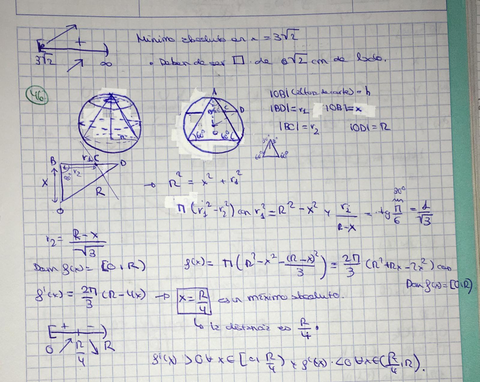 +
3√2 ∞
Mínimo absoluto en x = 3√2
• Deben de ser □ de 6√2 cm de lado.
46
A
B C D
60° 60°
|OB| (altura de corte) = h
|BD| = r₁ |OB| = x
|BC| = r₂ |OD| = R
B r₂ C D
X r₁ R
O
→ R² = x² + r₁²
π(r₁² - r₂²) con r₁² = R² - x² y r₂/(R-x) = tg π/6 = 1/√3
30°
r₂ = (R-x)/√3
Dom f(x) = [0,R)
f(x) = π(R² - x² - (R-x)²/3) = 2π/3 (R² + Rx - 2x²) con
Dom f(x) = [0,R)
f'(x) = 2π/3 (R - 4x) → x = R/4 es un máximo absoluto.
↳ la distancia es R/4.
+ -
0 R/4 R
f'(x) > 0 ∀ x ∈ [0, R/4) y f'(x) < 0 ∀ x ∈ (R/4, R).